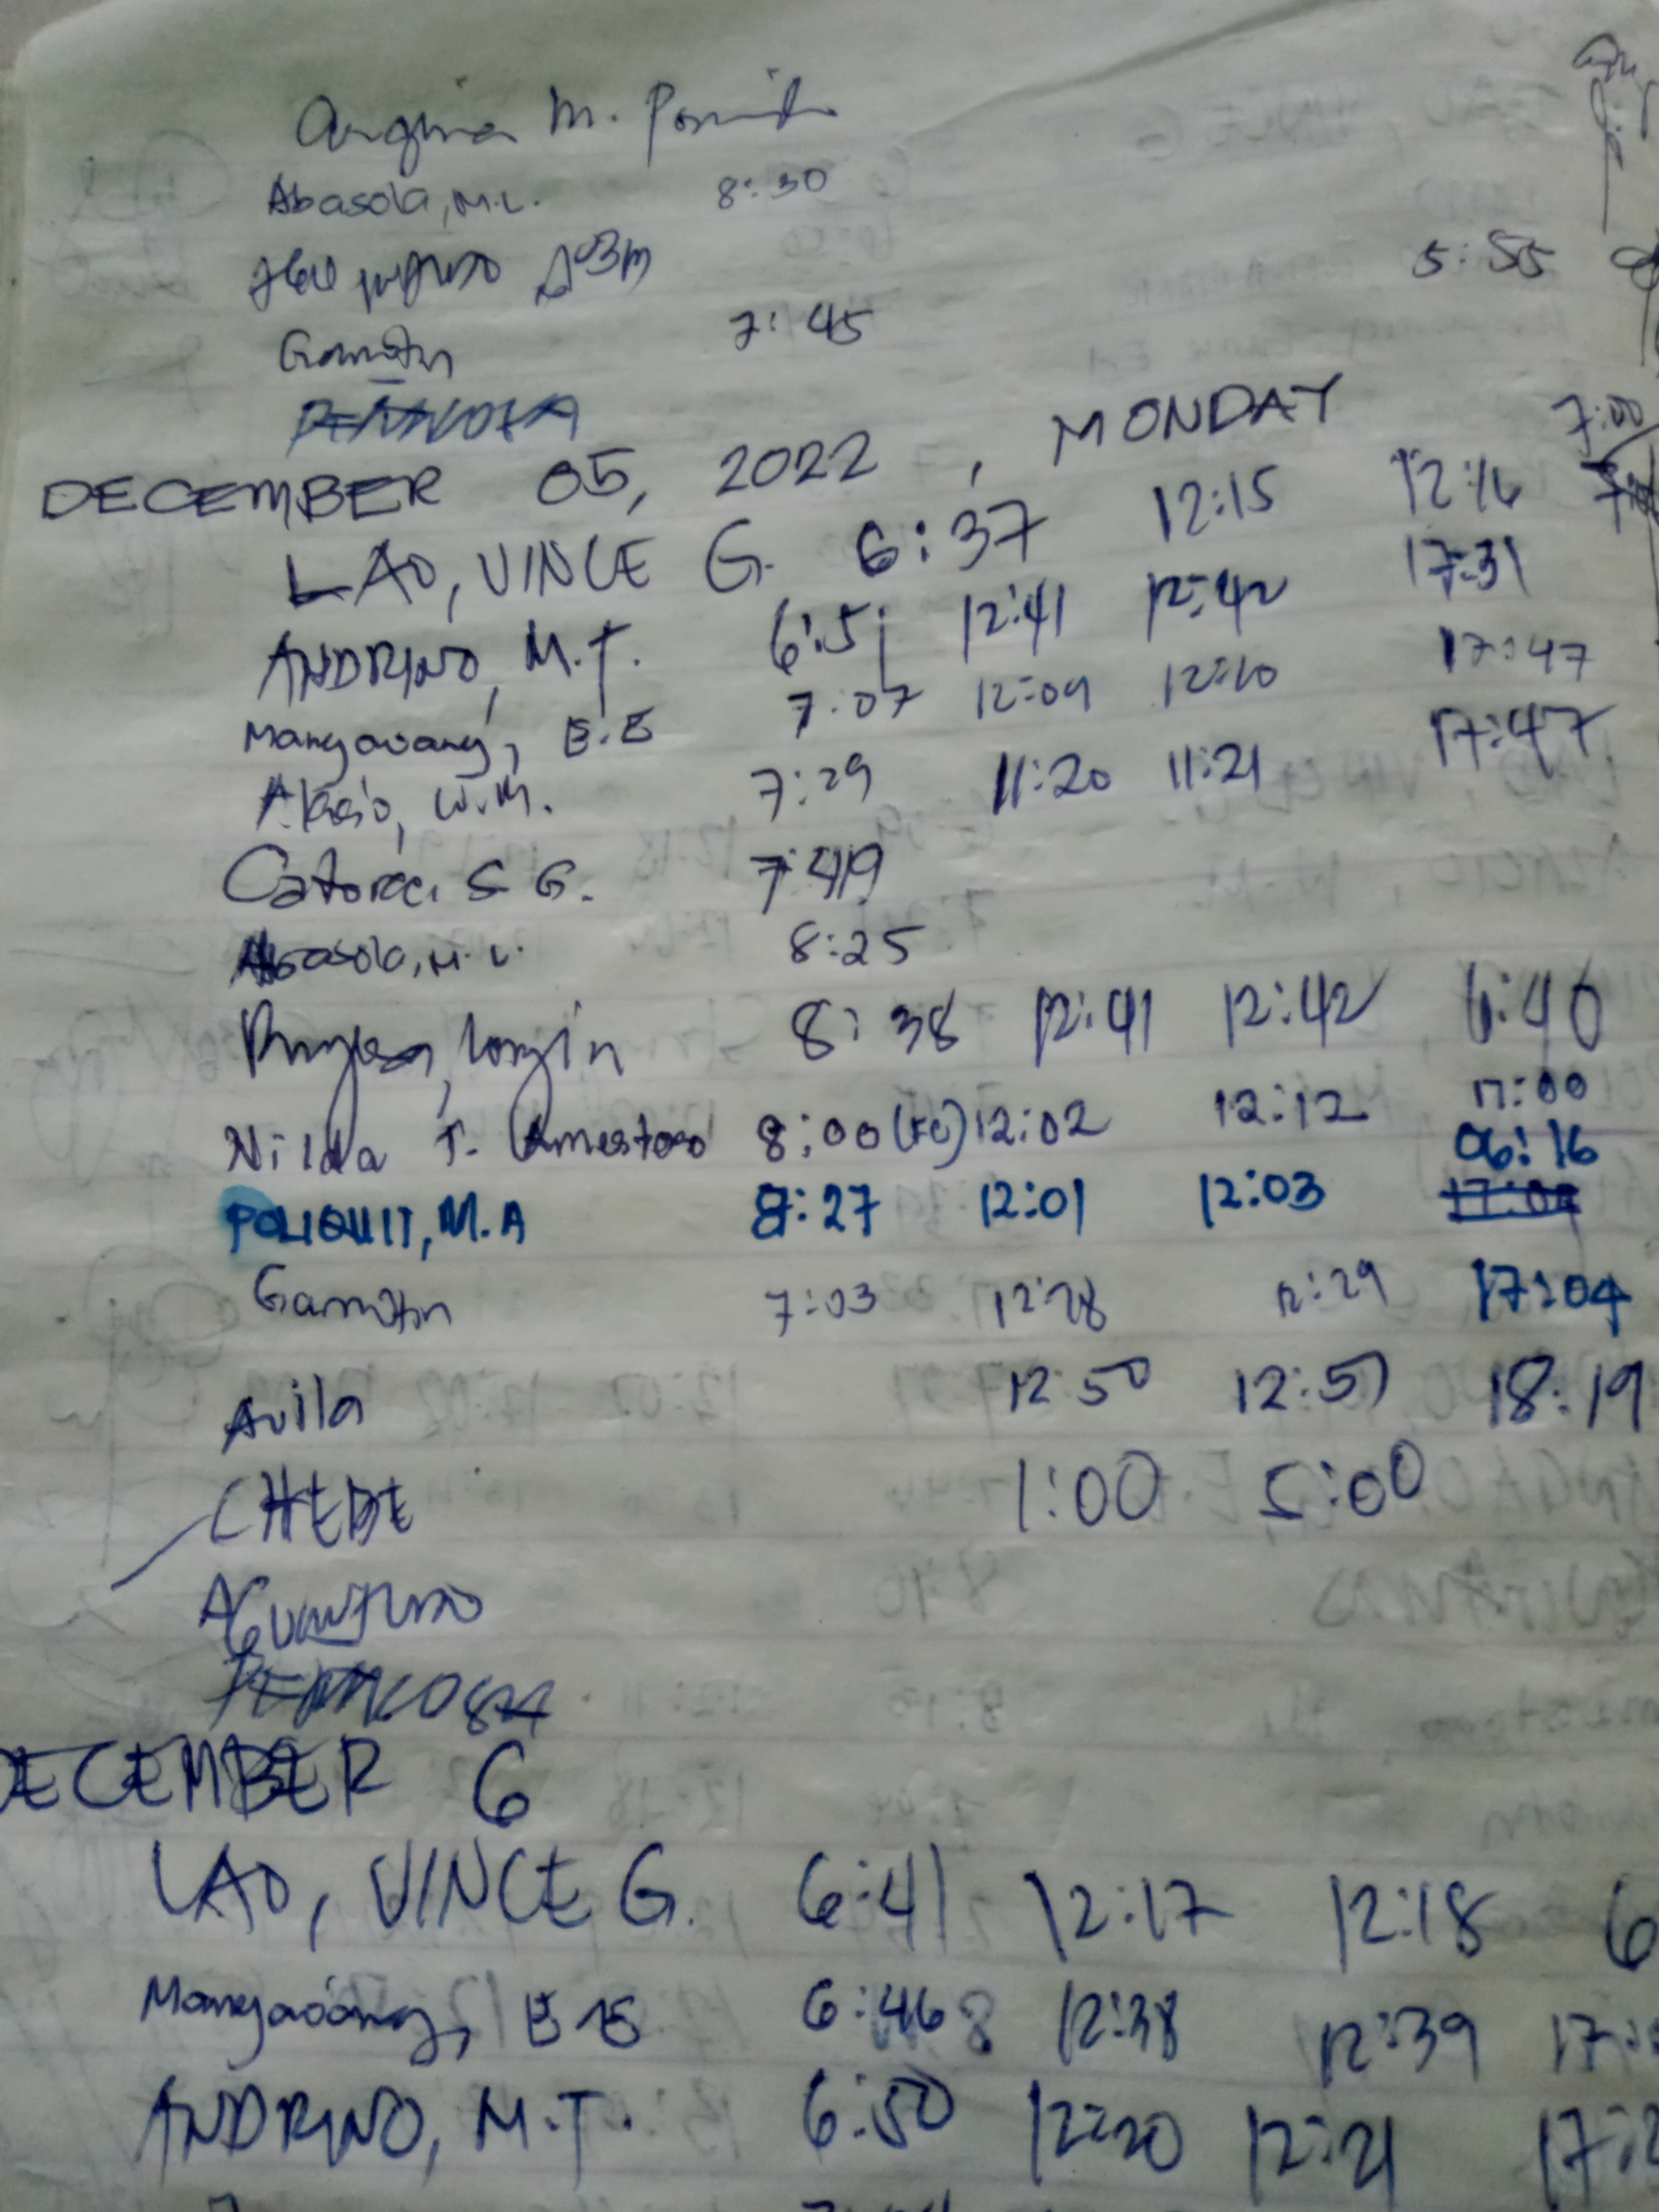 M.
Abasola, M.L. 8:30
5:55
Gamotin 7:45
DECEMBER 05, 2022, MONDAY 7:00
LAO, VINCE G. 6:37 12:15 12:16
ANDRINO, M.T. 6:51 12:41 12:42 17:31
Mangaoang, E.E 7:07 12:09 12:10 17:47
Alacio, W.M. 7:29 11:20 11:21 17:47
Catoraci S G. 7:49
Abasola, M.L. 8:25
8:38 12:41 12:42 6:40
Nilda T. Amestoso 8:00 12:02 12:12 17:00
POLIQUIT, M.A 8:27 12:01 12:03 06:16
Gamotin 7:03 12:28 12:29 17:04
Avila 12:50 12:51 18:19
CHEDE 1:00 5:00
DECEMBER 6
LAO, VINCE G. 6:41 12:17 12:18 6
Mangaoang, E E 6:46 12:38 12:39 17:
ANDRINO, M.T. 6:50 12:20 12:21 17:2